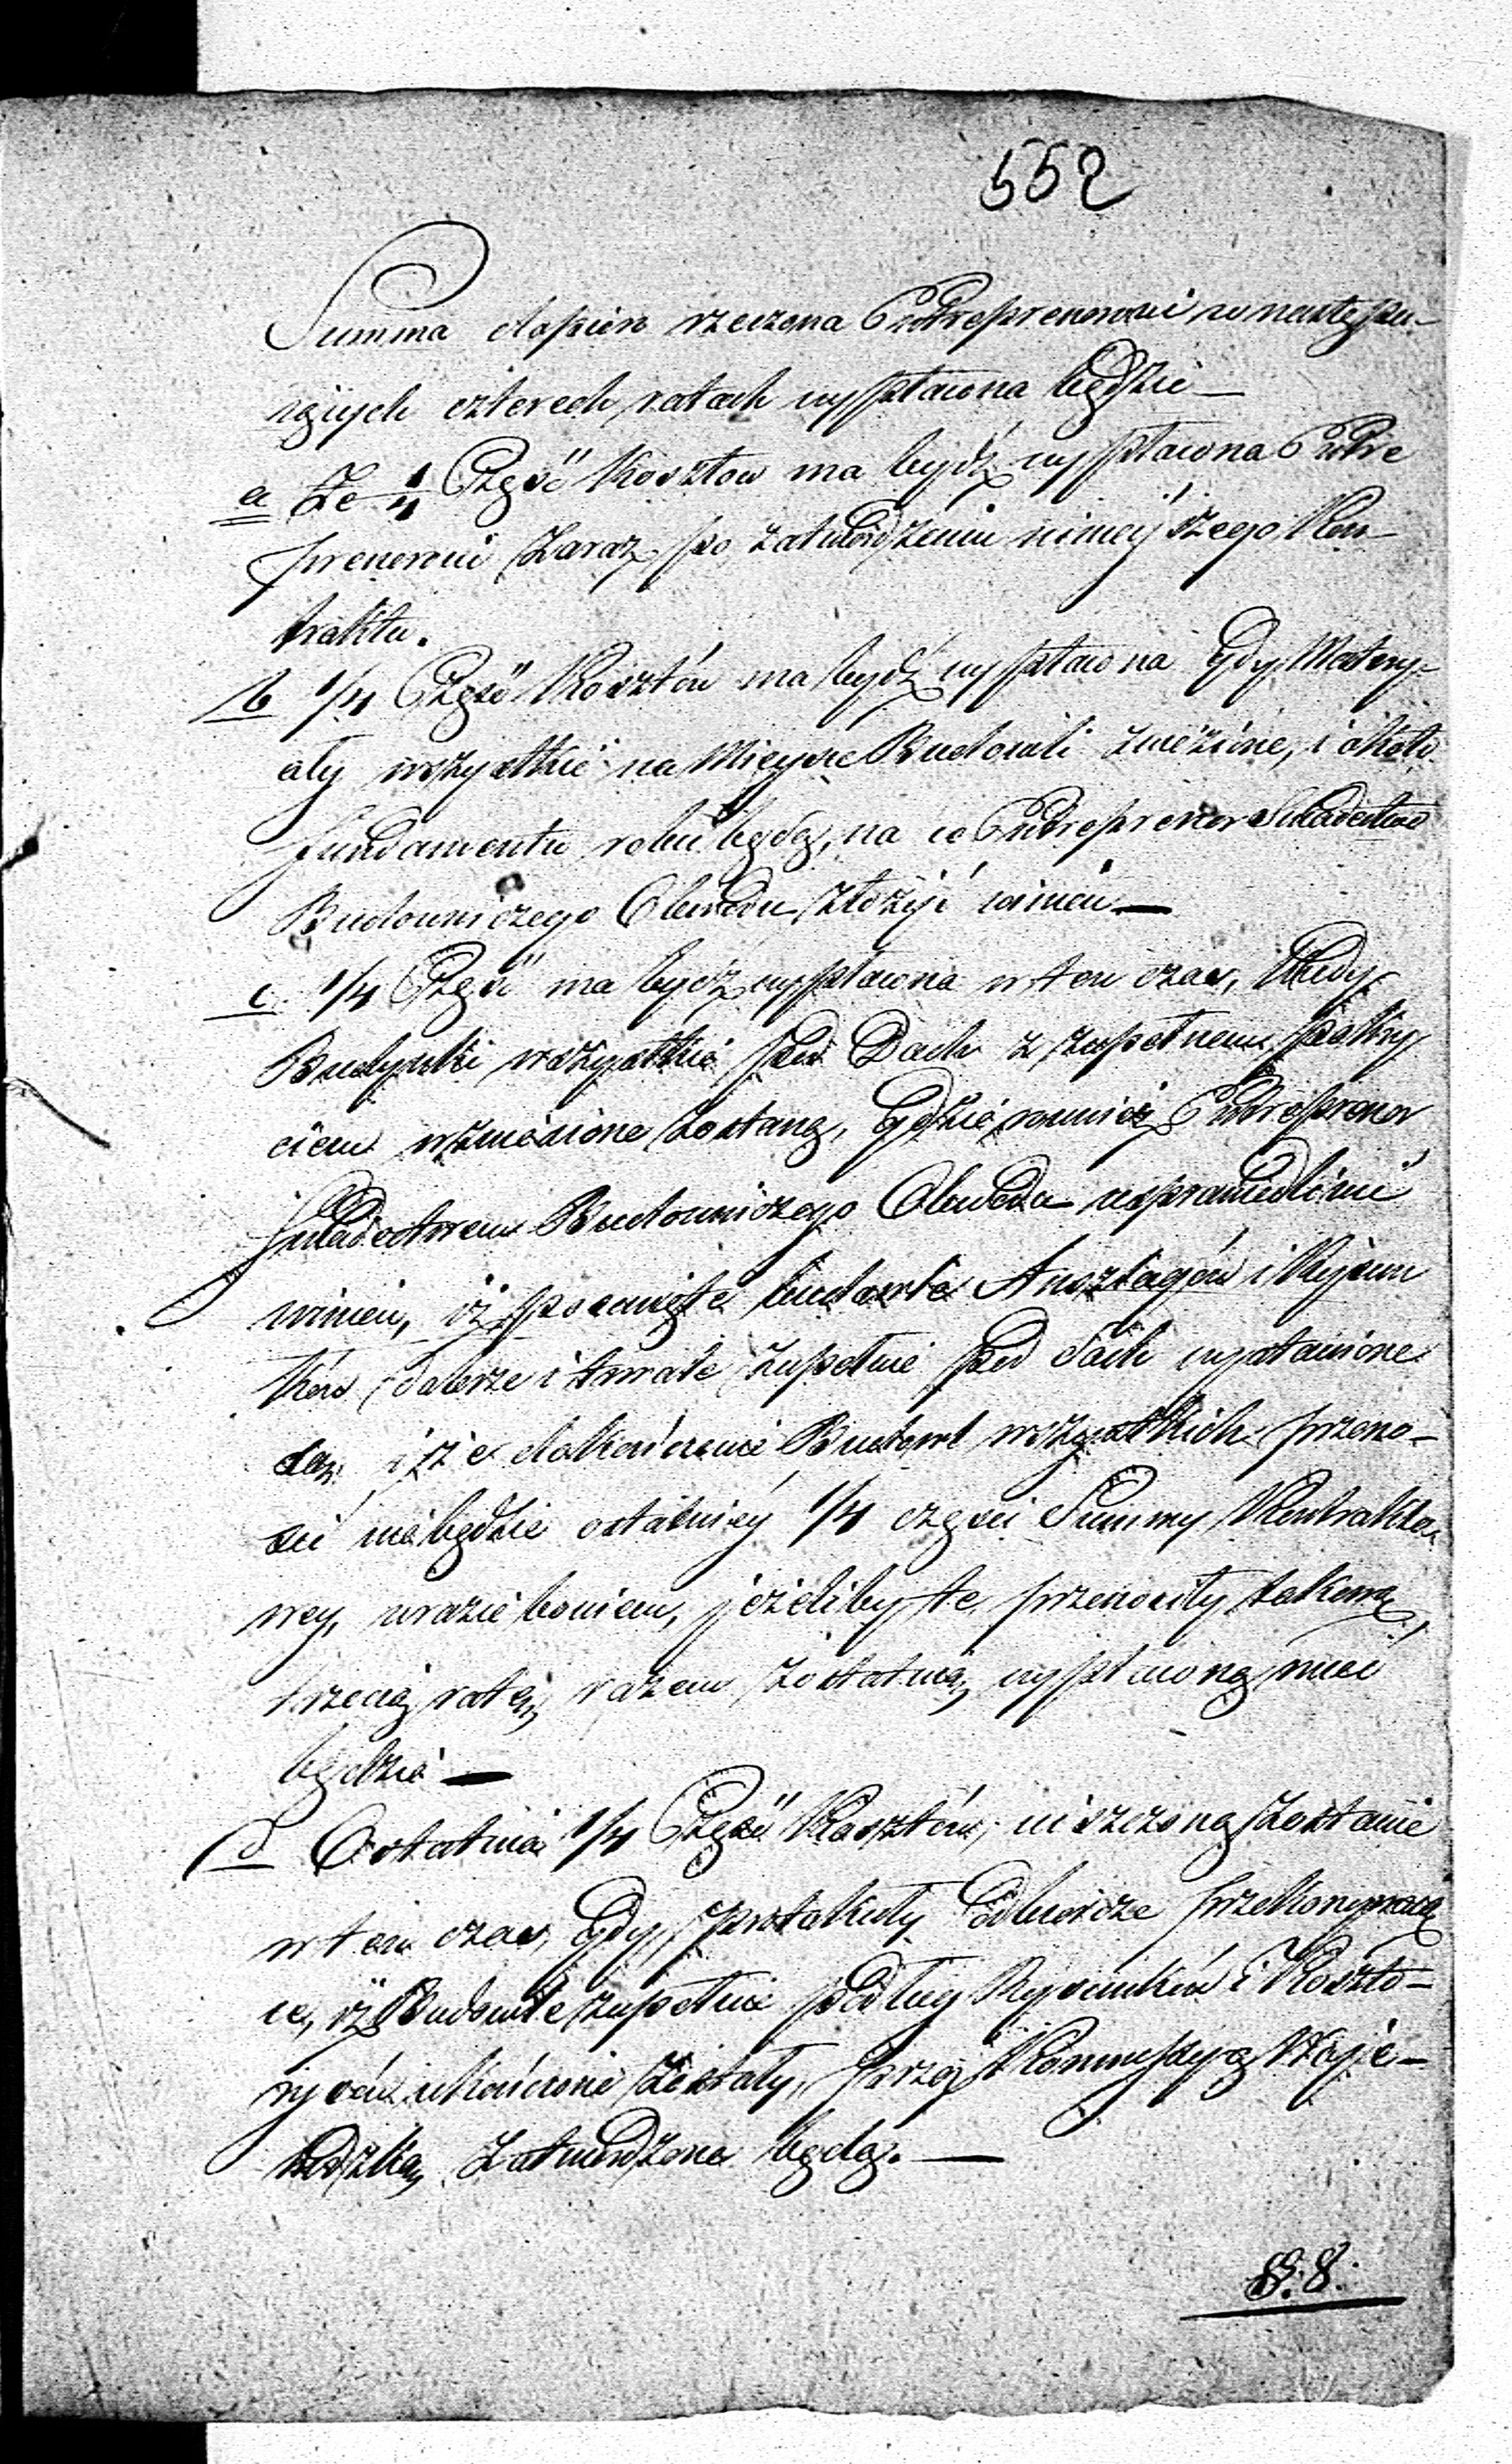 552
Summa dopiero rzeczona Entreprenerowi w nastepu-
iących czterech ratach wypłacona będzie —
a Że 1/4 Część Kosztow ma bydź wypłacona Entre
prenerowi zaraz po zatwierdzeniu ninieyszego Kon-
traktu.
b 1/4 Część Kosztów ma bydź wypłacona gdy Matery-
ały wszystkie na Mieysce Budowli zwiezione, i około
fundamentu robić będą, na co Entreprener Swiadectwo
Budowniczego Obwodu złożyć winien —
c. 1/4 Część ma bydź wypłacona w ten czas, kiedy
Budynki wszystkie pod Dach z zupełnem pokry
ciem wzniesione zostaną, gdzie rownież Entreprener
Swiadectwem Budowniczego Obwodu usprawiedliwić
winien, iż poczięte budowle Anszlagów i Rysun
ków dobrze i trwale zupełnie pod dach wystawione
są, i że dokończenie Budowl wszystkich przeno-
sić niebędzie ostatniéy 1/4 części Summy Kontrakto
wey, wrazie bowiem, jeżeliby te przenosiły takową,
trzecią ratę, razem z ostatnią wypłaconą mieć
będzie —
d Ostatnia 1/4 Część Kosztów, uiszczoną zostanie
w ten czas, gdy protokuły odbiorcze przekonywaią
ce, iż Budowle zupełnie podług Rysunków i Koszto-
rysów ukończone zostały, przez Kommissyą Woje-
wodzką zatwierdzone będą. —
§. 8.